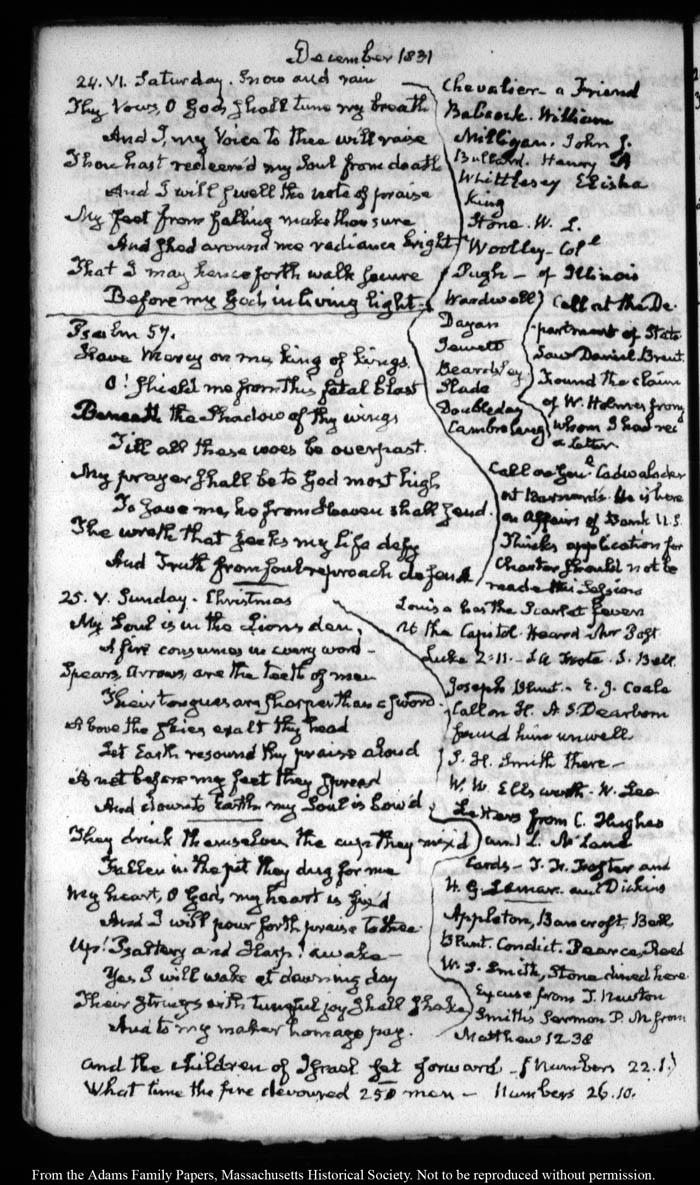 December 1831
24. VI. Saturday. Snow and rain
Thy Vows, O God, shall tune my breath
And I, my Voice to thee will raise
Thou hast redeem'd my Soul from death
And I will swell the note of praise
My feet from falling make thou sure
And shed around me radiance bright
That I may henceforth walk secure
Before my God, in living light.
Psalm 57.
Have Mercy on me, King of kings
O! Shield me from this fatal blast
Beneath the Shadow of thy wings
Till all these woes be overpast.
My prayer shall be to God most high
To save me, he from Heaven shall send.
The wrath that seeks my life defy
And Truth from foul reproach defend
Chevalier - a Friend
Babcock. William
Milligan. John J.
Bullard. Henry A
Whittlesey Elisha
King
Stone. W. L.
Woolley - Col.l
Pugh - of Illinois
Wardwell
Dayan
Jewett
Beardsley
Slade
Doubleday
Cambreleng
Call at the De-
partment of State
Saw Daniel Brent.
Found the claim
of W. Holmes from
whom I had rec
a letter
Call on Gen.l Cadwalader
at Barnard's. He is here
on Affairs of Bank U.S.
Thinks application for
Charter should not be
made this Session
25. V. Sunday. Christmas
My Soul is in the Lions den,
A fire consumes in every word -
Spears, Arrows, are the teeth of men
Their tongues are sharper than a sword.
Above the skies exalt thy head
Let Earth resound thy praise aloud
A net before my feet they spread
And down to Earth my Soul is bow'd
They drink themselves the cup they mix'd
Fallen in the pit they dug for me
My heart, O God, my heart is fix'd
And I will pour forth praise to thee
Up! Psaltery and Harp! awake -
Yes I will wake at dawning day
Their strings with tuneful joy shall shake
And to my maker homage pay.
Louisa has the Scarlet fever
At the Capitol. Heard Mr Post
Luke 2:11. - S. Bell
Joseph Blunt. - E. J. Coale
Call on H. A S. Dearborn
found him unwell.
S. H. Smith there -
W. W. Ellsworth. W. Lee
Letters from C. Hughes
and L. McLane
Cards - T. F. Foster and
H. G. Lamar. and Dickins
Appleton, Bancroft, Bell
Blunt. Condict. Pearce, Reed
W. S. Smith, Stone dined here
Excuse from T. Newton
Smith's Sermon P. M. from
Matthew 12.38
And the children of Israel set forward - (Numbers 22.1.)
What time the fire devoured 250 men - Numbers 26.10.
From the Adams Family Papers, Massachusetts Historical Society. Not to be reproduced without permission.